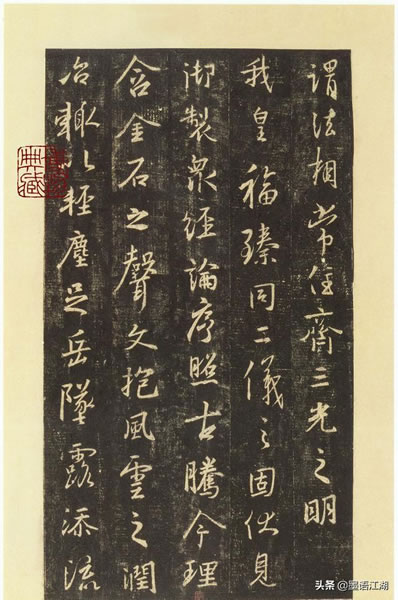 謂法相常住齊三光之明
我皇福臻同二儀之固伏見
御製眾經論序照古騰今理
含金石之聲文抱風雲之潤
治輒以輕塵足岳墜露添流
头条 @國语江湖